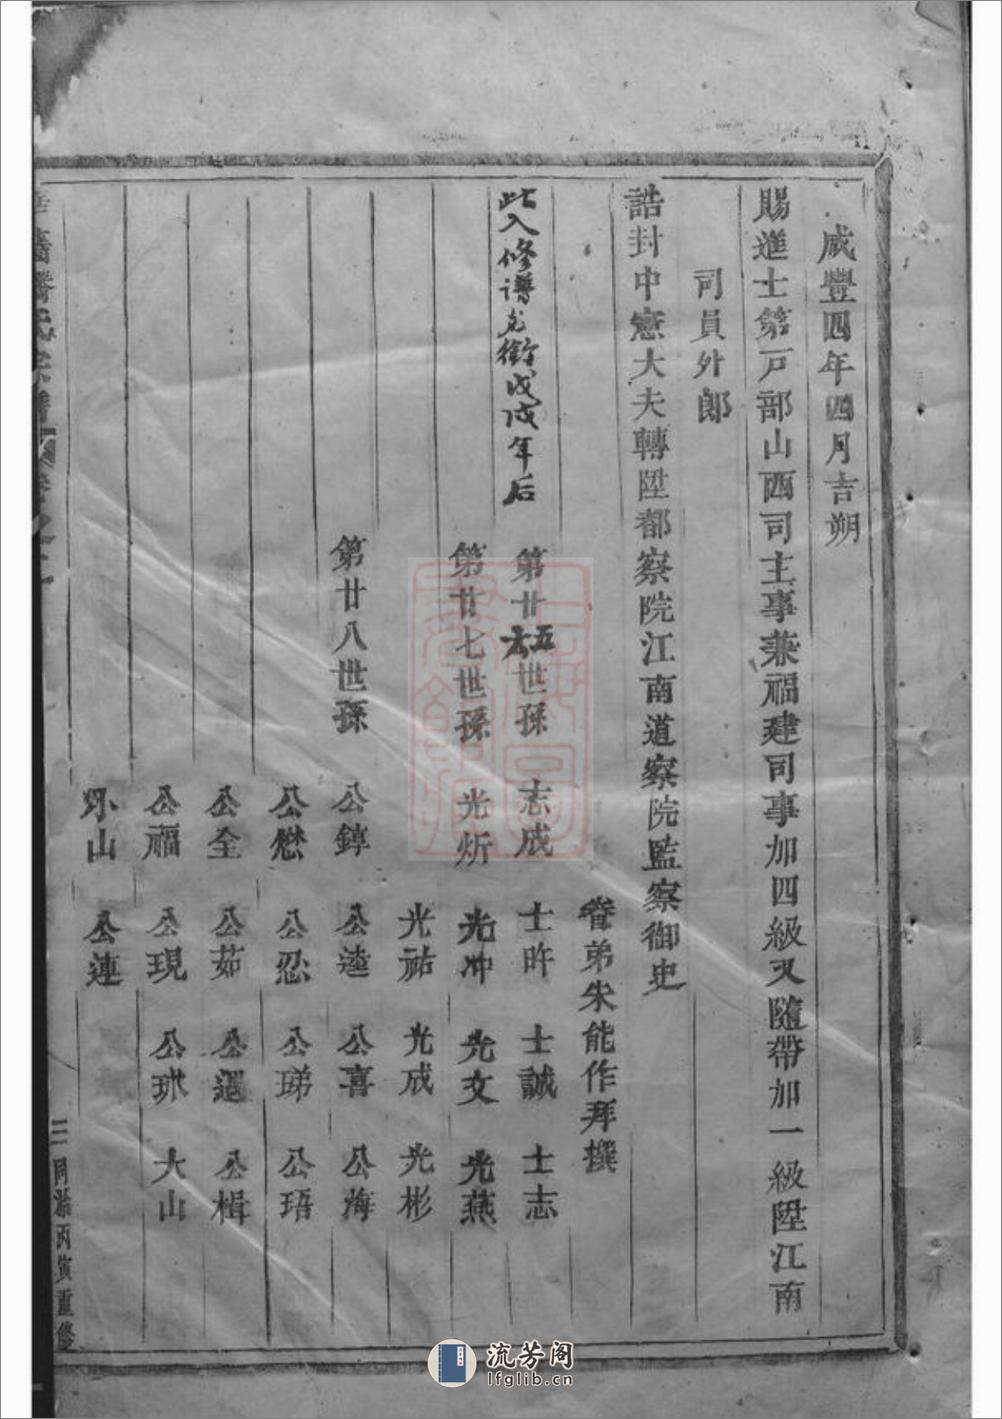 咸豐四年四月吉朔
賜進士第戸部山西司主事兼福建司事加四級又隨帶加一級陞江南
司員外郎
誥封中憲大夫轉陞都察院江南道察院監察御史
眷弟朱能作拜撰
此入修谱 衔戊戌年后
第廿五世孫 志成 士昨 士誠 士志
第廿七世孫 光炘 光冲 光文 光燕
光祐 光成 光彬
第廿八世孫 公錞 公逵 公喜 公海
公懋 公忍 公珶 公珸
公全 公茹 公遲 公楫
公福 公現 公球 大山
山 公連
氏宗譜
三 同治丙寅重修
流芳阁
lfglib.cn